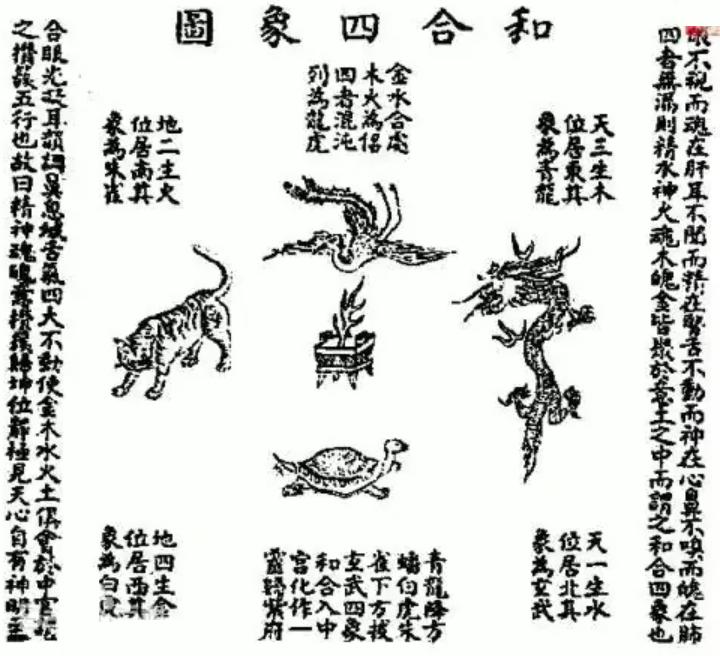 和合四象圖
不視而魂在肝耳不聞而精在腎舌不動而神在心鼻不嗅而魄在肺
四者無漏則精水神火魂木魄金皆聚於意土之中而謂之和合四象也
天三生木
位居東其
象為青龍
金水合處
木火為侶
四者混沌
列為龍虎
地二生火
位居南其
象為朱雀
天一生水
位居北其
象為玄武
青龍降方
蟠白虎朱
雀下方拔
玄武四象
和合入中
宮化作一
靈歸紫府
地四生金
位居西其
象為白虎
合眼光凝耳韻調鼻息緘舌氣四大不動使金木水火土俱會於中宮
之攢簇五行也故曰精神魂魄意攢簇歸坤位靜極見天心自有神明至